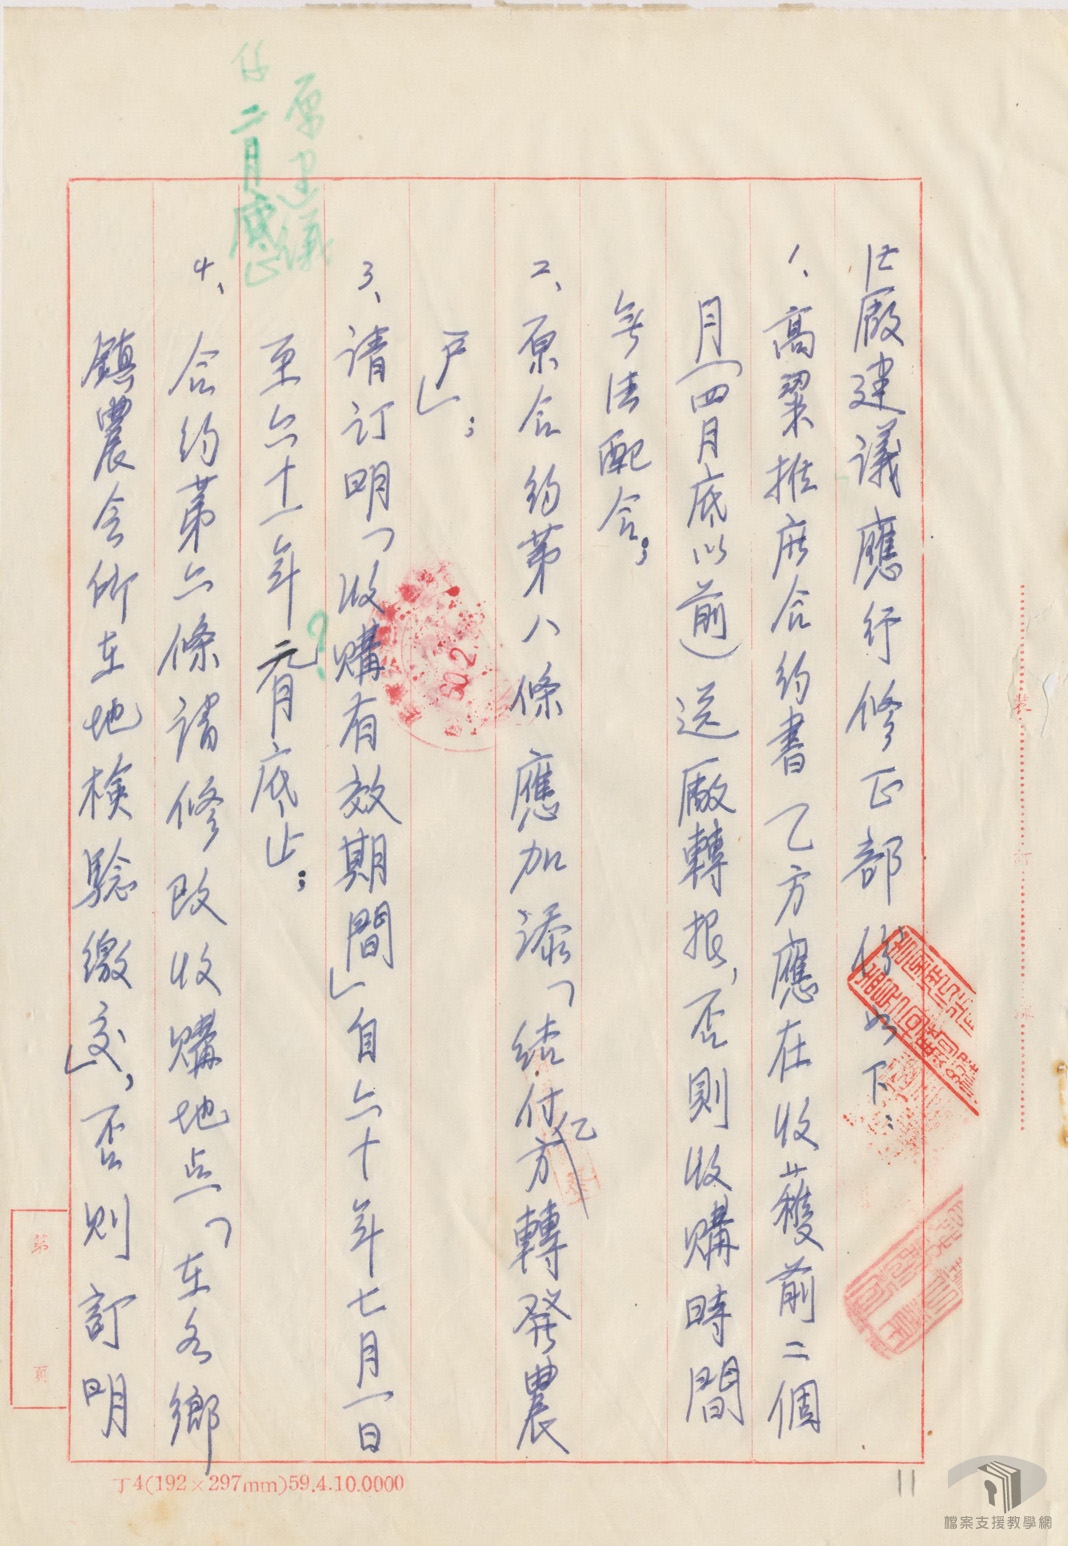 仁廠建議應行修正部份如下：
1、高粱推広合約書乙方應在收穫前二個
月(四月底以前)送廠轉報，否則收購時間
無法配合；
2、原合約第八條應加添「結付乙方轉發農
戶」；
3、請訂明「收購有效期間」自六十年七月一日
至六十一年元月底止；
4、合約第六條請修改收購地点「在各鄉
鎮農会所在地檢驗繳交」，否則訂明
原建議
係二月底止
?
裝
訂
線
第 頁
丁4(192×297mm)59.4.10.0000
11
檔案支援教學網